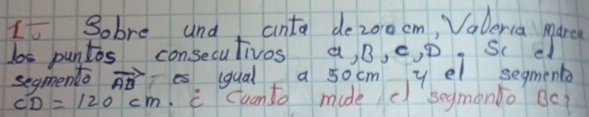 1- Sobre una cinta de 200 cm, Valeria marca
los puntos consecutivos a, B, c, D. Si el
segmento AB es igual a 50cm y el segmento
CD = 120 cm. ¿ Cuanto mide el segmento BC?